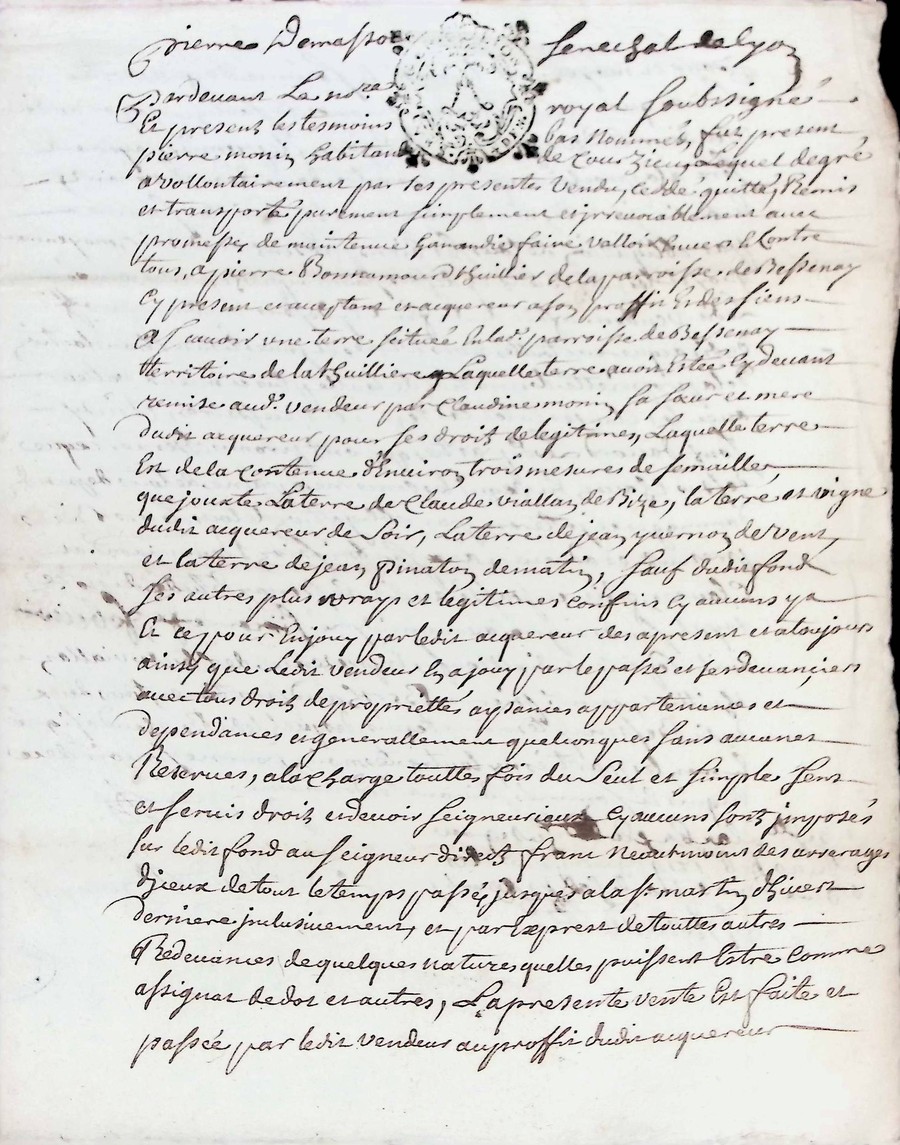 pierre Demasso Senechal de lyon
Pardevant Le no.re royal soubssigné
Et present les tesmoins bas nommés, fut present
pierre monin habitant de Courzieu, Lequel de gré
a vollontairement par les presentes vendu, ceddé quitté, Remis
et transporté purement simplement et irrevocablement avec
promesse, de maintenue garandie faire valloir Envers et Contre
tous, a pierre Bonnamour dthuillier de la parroisse de Bessenay
Cy present et acceptant et acquereur a son proffit Et des siens
A scavoir une terre située En lad. parroisse de Bessenay
territoire de la thuilliere Laquelle terre avoit Estée Cy devant
remise aud. vendeur par Claudine monin sa sœur et mere
dudit acquereur pour ses droitz de legitimes, Laquelle terre
Est de la Contenue d'Environ trois mesures de semailles
que jouxte La terre de Claude viallan de Bize, la terre et vigne
dudit acquereur de Soir, La terre de jean quernon de Vent
et la terre de jean Pinaton de matin, sauf dudit fond
ses autres plus vrays et legitimes Confins Cy aucuns y a
Et ce pour En jouy par ledit acquereur des a present et a toujours
ainsy que Ledit vendeur En a jouy par le passé et ses devanciers
avec tous droitz de proprietés aysances appartenances et
dependances et generallement quelconques sans aucunes
Reserves, a la Charge touttes fois du Seul et simple sens
et servis droit et devoir seigneurieux Cy aucuns sont jmposés
sur ledit fond au seigneur direct franc Neautmoint des arrerages
d'jceux de tout le temps passé, jusques a la st martin d'hivert
derniere jnclusivement, et par Exprest de touttes autres
Redevances de quelques natures quelles puissent Estre Comme
assignat de dot et autres, La presente vente Est faite et
passée par ledit vendeur au proffit dudit acquereur